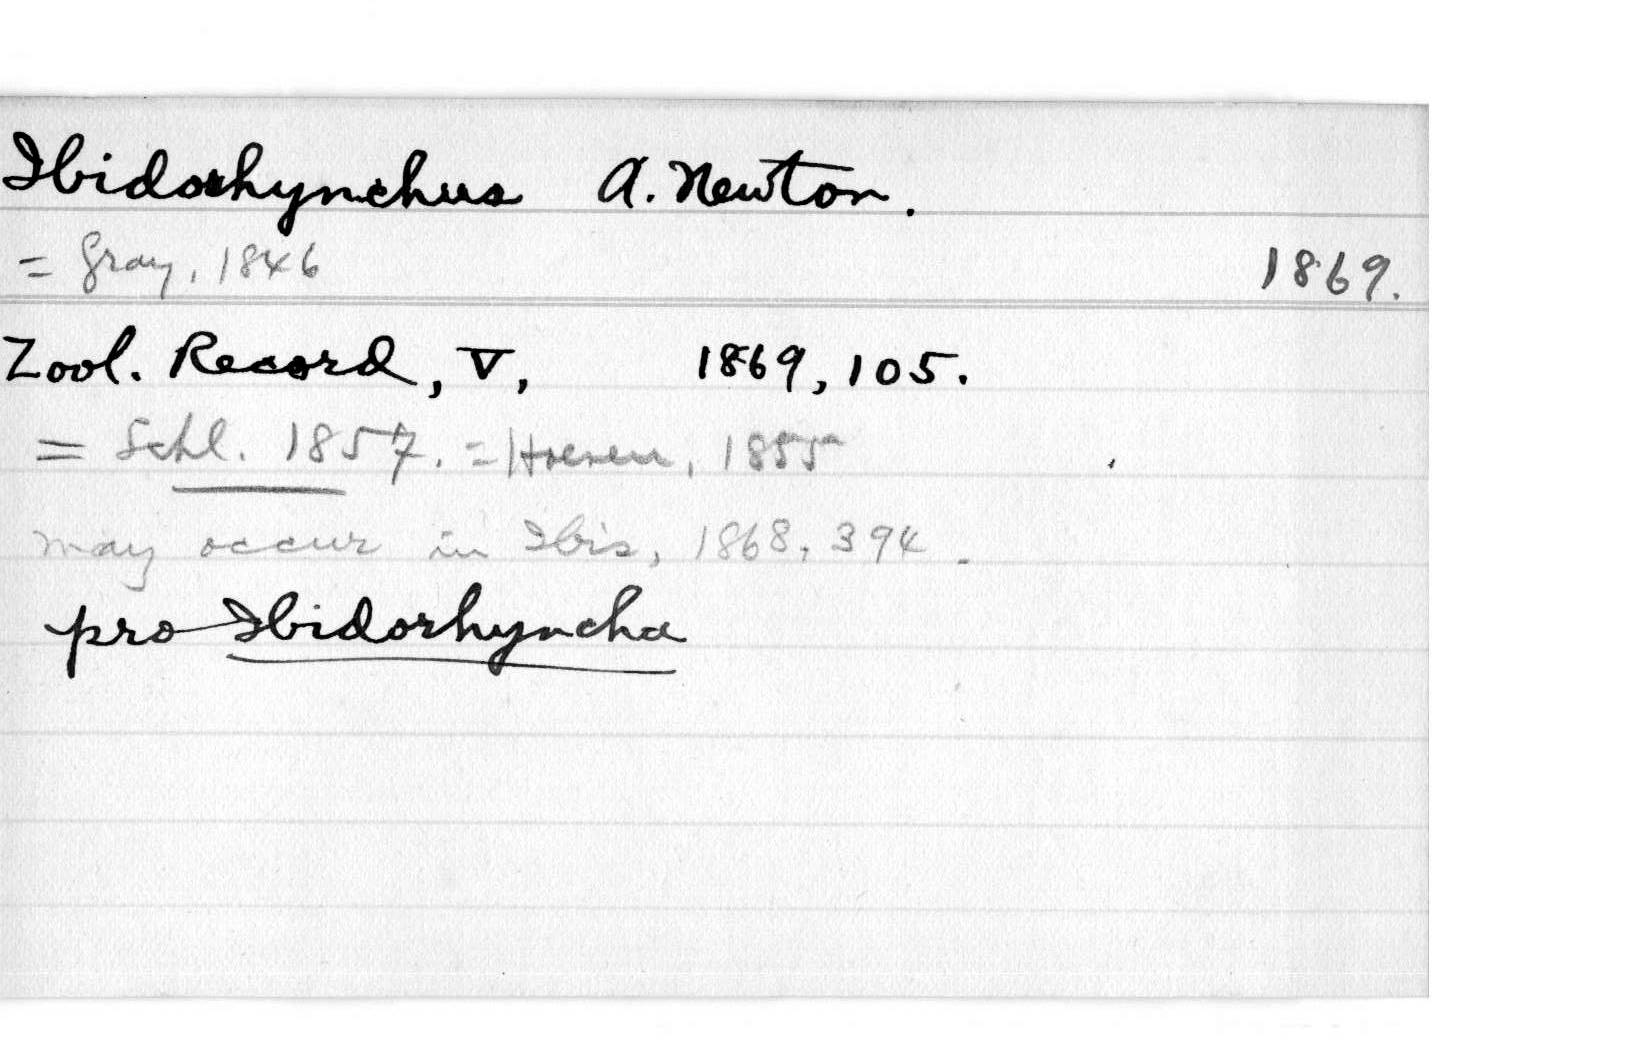 Ibidorhynchus A. Newton.
= Gray, 1846
1869.
Zool. Record, V, 1869, 105.
= Schl. 1857. = Hoeven, 1855
may occur in Ibis, 1868, 394.
pro Ibidorhyncha